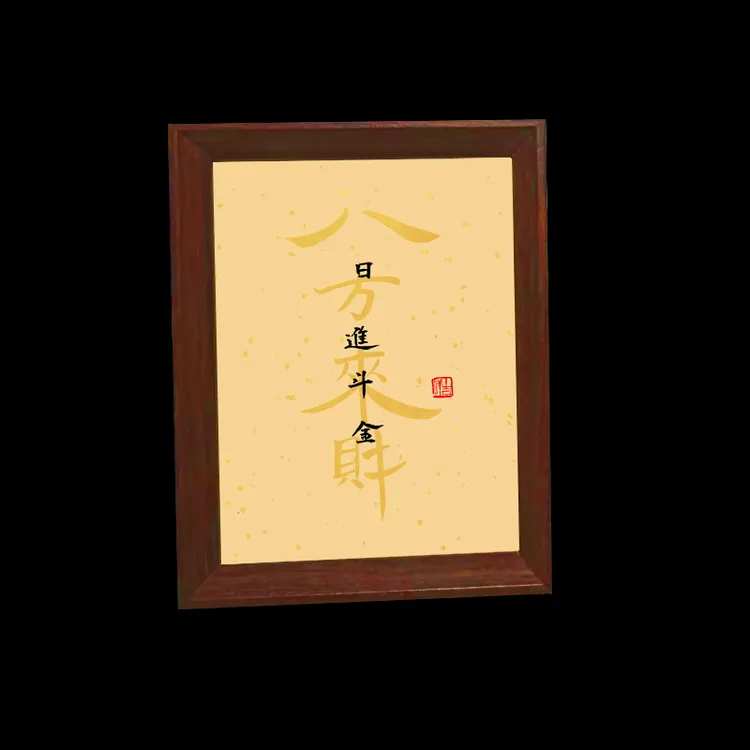 八方來財
日進斗金